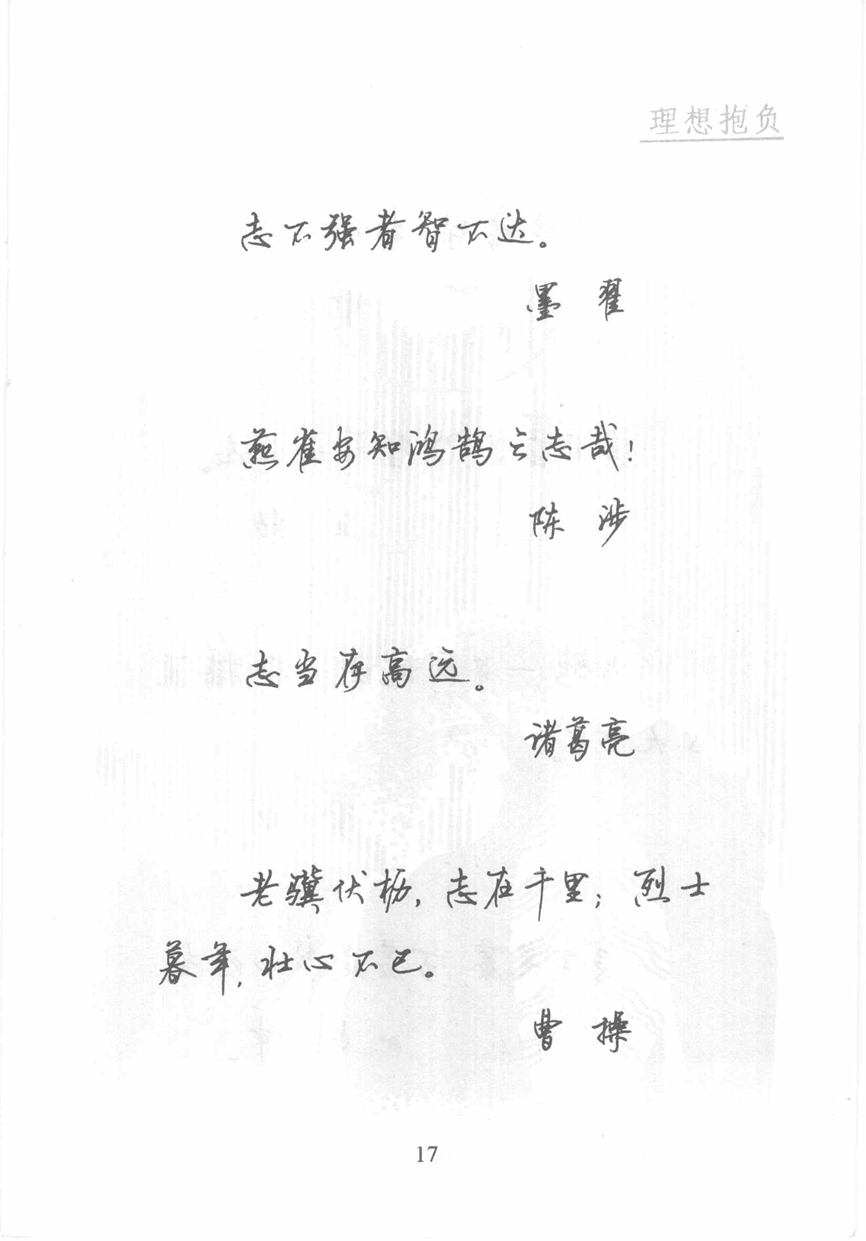 理想抱负
志不强者智不达。
墨翟
燕雀安知鸿鹄之志哉!
陈涉
志当存高远。
诸葛亮
老骥伏枥,志在千里;烈士
暮年,壮心不已。
曹操
17